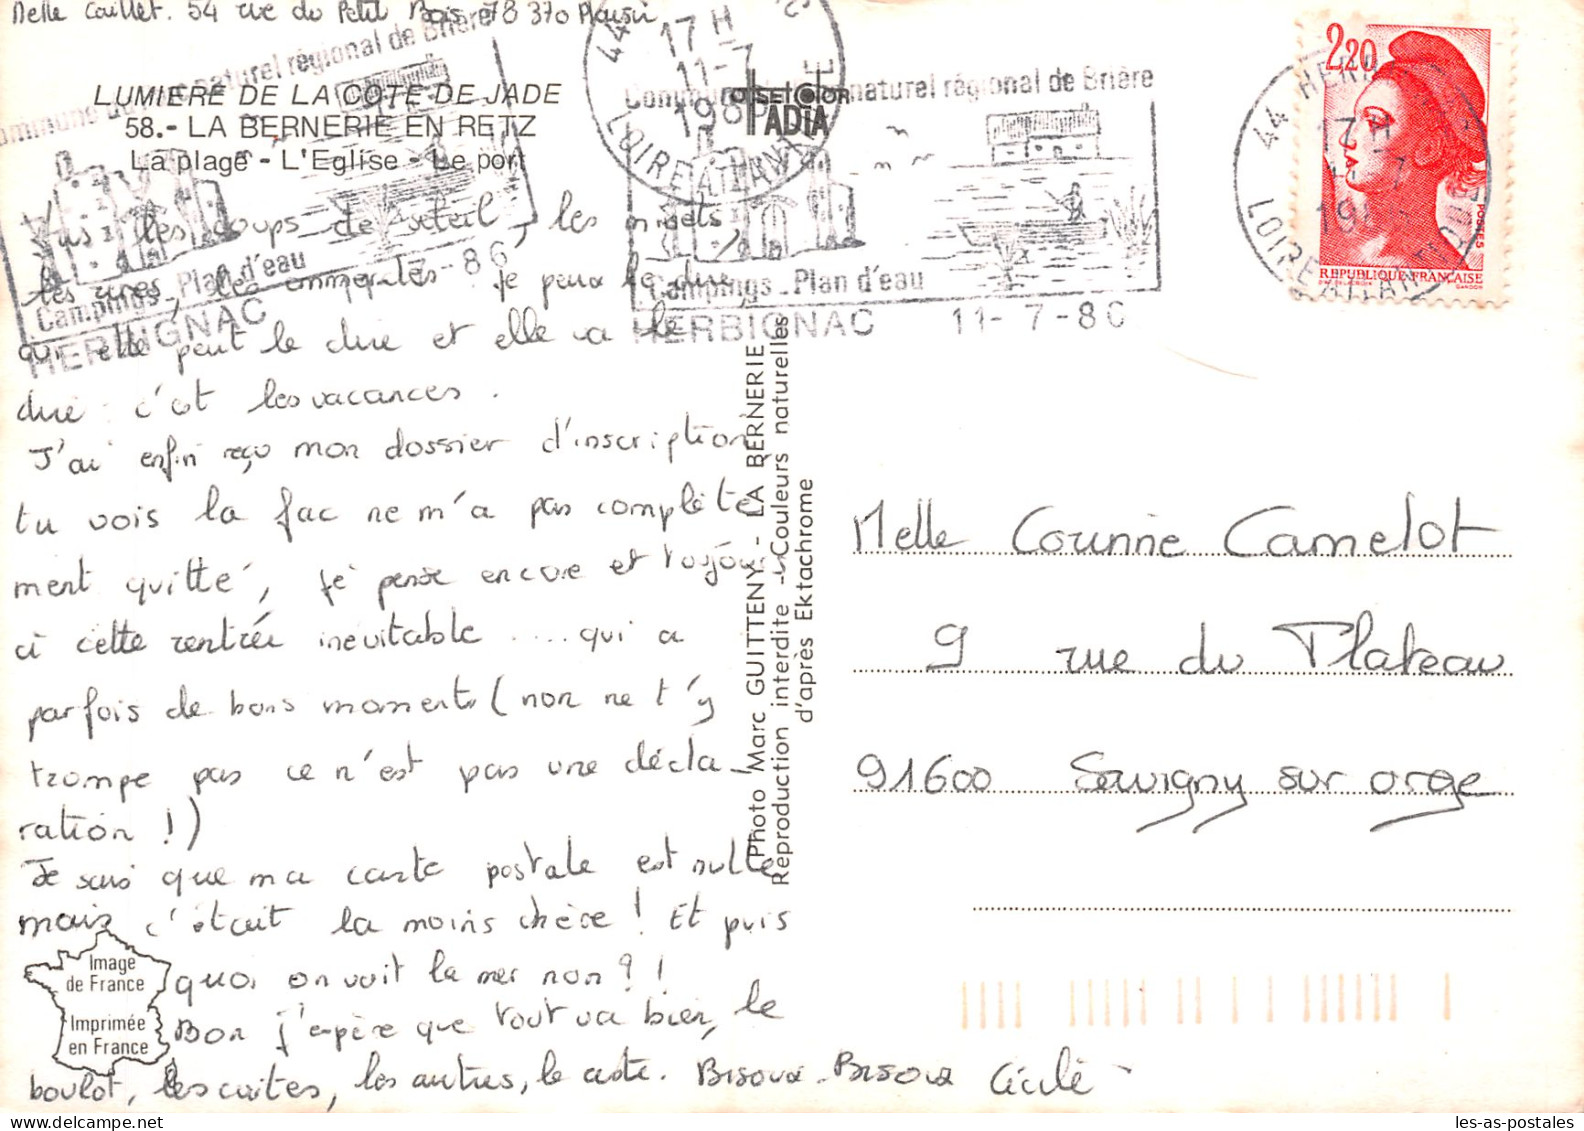 Melle Caillet. 54 rue du Petit Bois 78 370 Plaisir
LUMIERE DE LA COTE DE JADE
58.- LA BERNERIE EN RETZ
La plage - L'Eglise - Le port
Commune du naturel régional de Brière
Campings - Plan d'eau
HERBIGNAC
7-86
17 H
11-7
1986
44
LOIRE ATLANTIQUE
Commune naturel régional de Brière
OFFSET COLOR
IADIA
Campings - Plan d'eau
HERBIGNAC 11-7-86
2,20
POSTES
REPUBLIQUE FRANÇAISE
GANDON
44 HERBIGNAC
LOIRE ATLANTIQUE
les coups de soleil, les
les je peux le dire,
qui elle peut le dire et elle va le
dire : c'est les vacances.
J'ai enfin reçu mon dossier d'inscription
tu vois la fac ne m'a pas complète
ment quitté, je pense encore et toujours
à cette rentrée inévitable ..... qui a
parfois de bons moments (non ne t'y
trompe pas ce n'est pas une décla-
ration !)
Je sais que ma carte postale est nulle
mais c'était la moins chère ! Et puis
quoi on voit la mer non ? !
Bon j'espère que tout va bien, le
boulot, les autres, le reste. Bisoux - Bisoux Cécile
Photo Marc GUITTENY - LA BERNERIE
Reproduction interdite - Couleurs naturelles
d'après Ektachrome
Melle Corinne Camelot
9 rue du Plateau
91600 Savigny sur orge
Image
de France
Imprimée
en France
les-as-postales